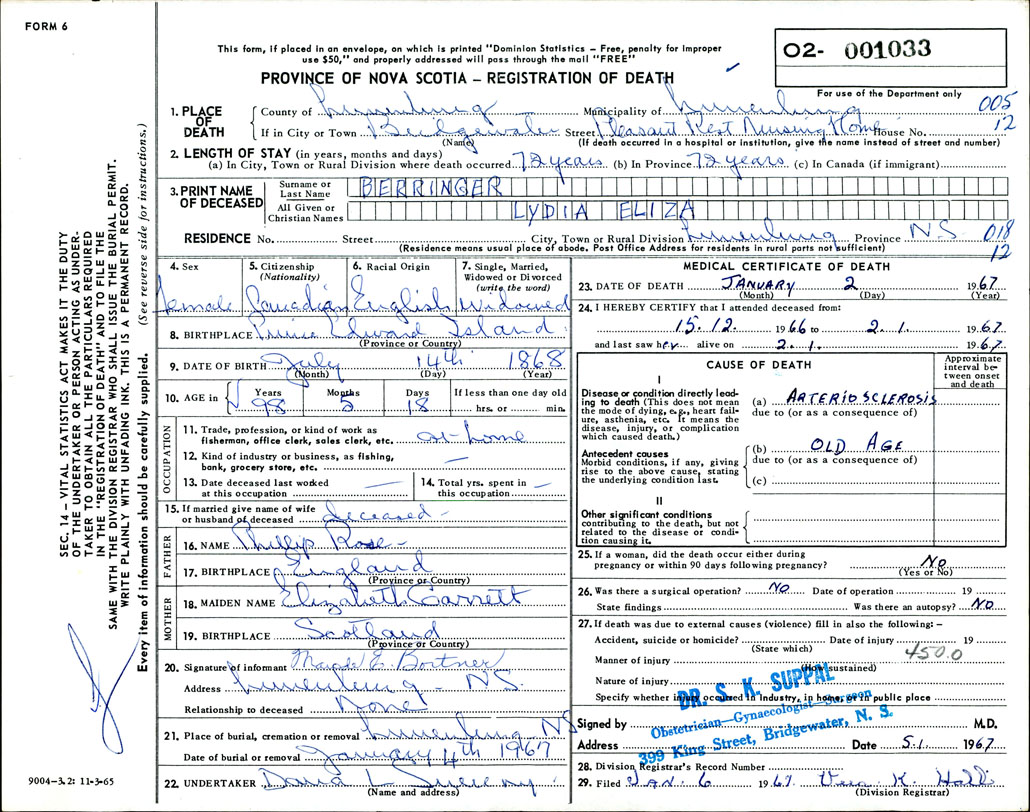 FORM 6
This form, if placed in an envelope, on which is printed "Dominion Statistics – Free, penalty for improper
use $50," and properly addressed will pass through the mail "FREE"
PROVINCE OF NOVA SCOTIA – REGISTRATION OF DEATH
O2- 001033
For use of the Department only
1. PLACE OF DEATH
County of Lunenburg Municipality of Lunenburg 005
If in City or Town Bridgewater Street Pleasant Rest Nursing Home House No. 12
(Name) (If death occurred in a hospital or institution, give the name instead of street and number)
2. LENGTH OF STAY (in years, months and days)
(a) In City, Town or Rural Division where death occurred 72 years (b) In Province 72 years (c) In Canada (if immigrant)
3. PRINT NAME OF DECEASED
Surname or Last Name BERRINGER
All Given or Christian Names LYDIA ELIZA
RESIDENCE No. Street City, Town or Rural Division Lunenburg Province N.S. 018
(Residence means usual place of abode. Post Office Address for residents in rural parts not sufficient) 12
4. Sex female
5. Citizenship (Nationality) Canadian
6. Racial Origin English
7. Single, Married, Widowed or Divorced (write the word) Widowed
8. BIRTHPLACE Prince Edward Island
(Province or Country)
9. DATE OF BIRTH July 14th 1868
(Month) (Day) (Year)
10. AGE in Years 98 Months 5 Days 18 If less than one day old hrs. or min.
OCCUPATION
11. Trade, profession, or kind of work as
fisherman, office clerk, sales clerk, etc. at home
12. Kind of industry or business, as fishing,
bank, grocery store, etc. —
13. Date deceased last worked
at this occupation —
14. Total yrs. spent in
this occupation —
15. If married give name of wife
or husband of deceased deceased -
FATHER
16. NAME Phillip Rose -
17. BIRTHPLACE England
(Province or Country)
MOTHER
18. MAIDEN NAME Elizabeth Garrett
19. BIRTHPLACE Scotland
(Province or Country)
20. Signature of informant E. Bortner
Address Lunenburg - N.S.
Relationship to deceased None
21. Place of burial, cremation or removal Lunenburg NS
Date of burial or removal January 4th 1967
22. UNDERTAKER David L
(Name and address)
MEDICAL CERTIFICATE OF DEATH
23. DATE OF DEATH JANUARY 2 1967
(Month) (Day) (Year)
24. I HEREBY CERTIFY that I attended deceased from:
15. 12. 1966 to 2. 1. 1967
and last saw her alive on 2. 1. 1967.
CAUSE OF DEATH
Approximate interval between onset and death
I
Disease or condition directly leading to death (This does not mean the mode of dying, e.g., heart failure, asthenia, etc. It means the disease, injury, or complication which caused death.)
(a) ARTERIOSCLEROSIS
due to (or as a consequence of)
Antecedent causes
Morbid conditions, if any, giving rise to the above cause, stating the underlying condition last.
(b) OLD AGE
due to (or as a consequence of)
(c)
II
Other significant conditions
contributing to the death, but not related to the disease or condition causing it.
25. If a woman, did the death occur either during
pregnancy or within 90 days following pregnancy? No
(Yes or No)
26. Was there a surgical operation? NO Date of operation 19
State findings Was there an autopsy? NO
27. If death was due to external causes (violence) fill in also the following: –
Accident, suicide or homicide? Date of injury 19
(State which) 450.0
Manner of injury (How sustained)
Nature of injury
Specify whether injury occurred in industry, in home, or in public place
DR. S. K. SUPPAL
Obstetrician—Gynaecologist—Surgeon
399 King Street, Bridgewater, N. S.
Signed by M.D.
Address Date 5.1. 1967.
28. Division Registrar's Record Number
29. Filed Jan. 6 1967. K.
(Division Registrar)
SEC. 14 – VITAL STATISTICS ACT MAKES IT THE DUTY
OF THE UNDERTAKER OR PERSON ACTING AS UNDER-
TAKER TO OBTAIN ALL THE PARTICULARS REQUIRED
IN THE "REGISTRATION OF DEATH" AND TO FILE THE
SAME WITH THE DIVISION REGISTRAR WHO SHALL ISSUE THE BURIAL PERMIT.
WRITE PLAINLY WITH UNFADING INK. THIS IS A PERMANENT RECORD.
Every item of information should be carefully supplied. (See reverse side for instructions.)
9004–3.2: 11-3-65